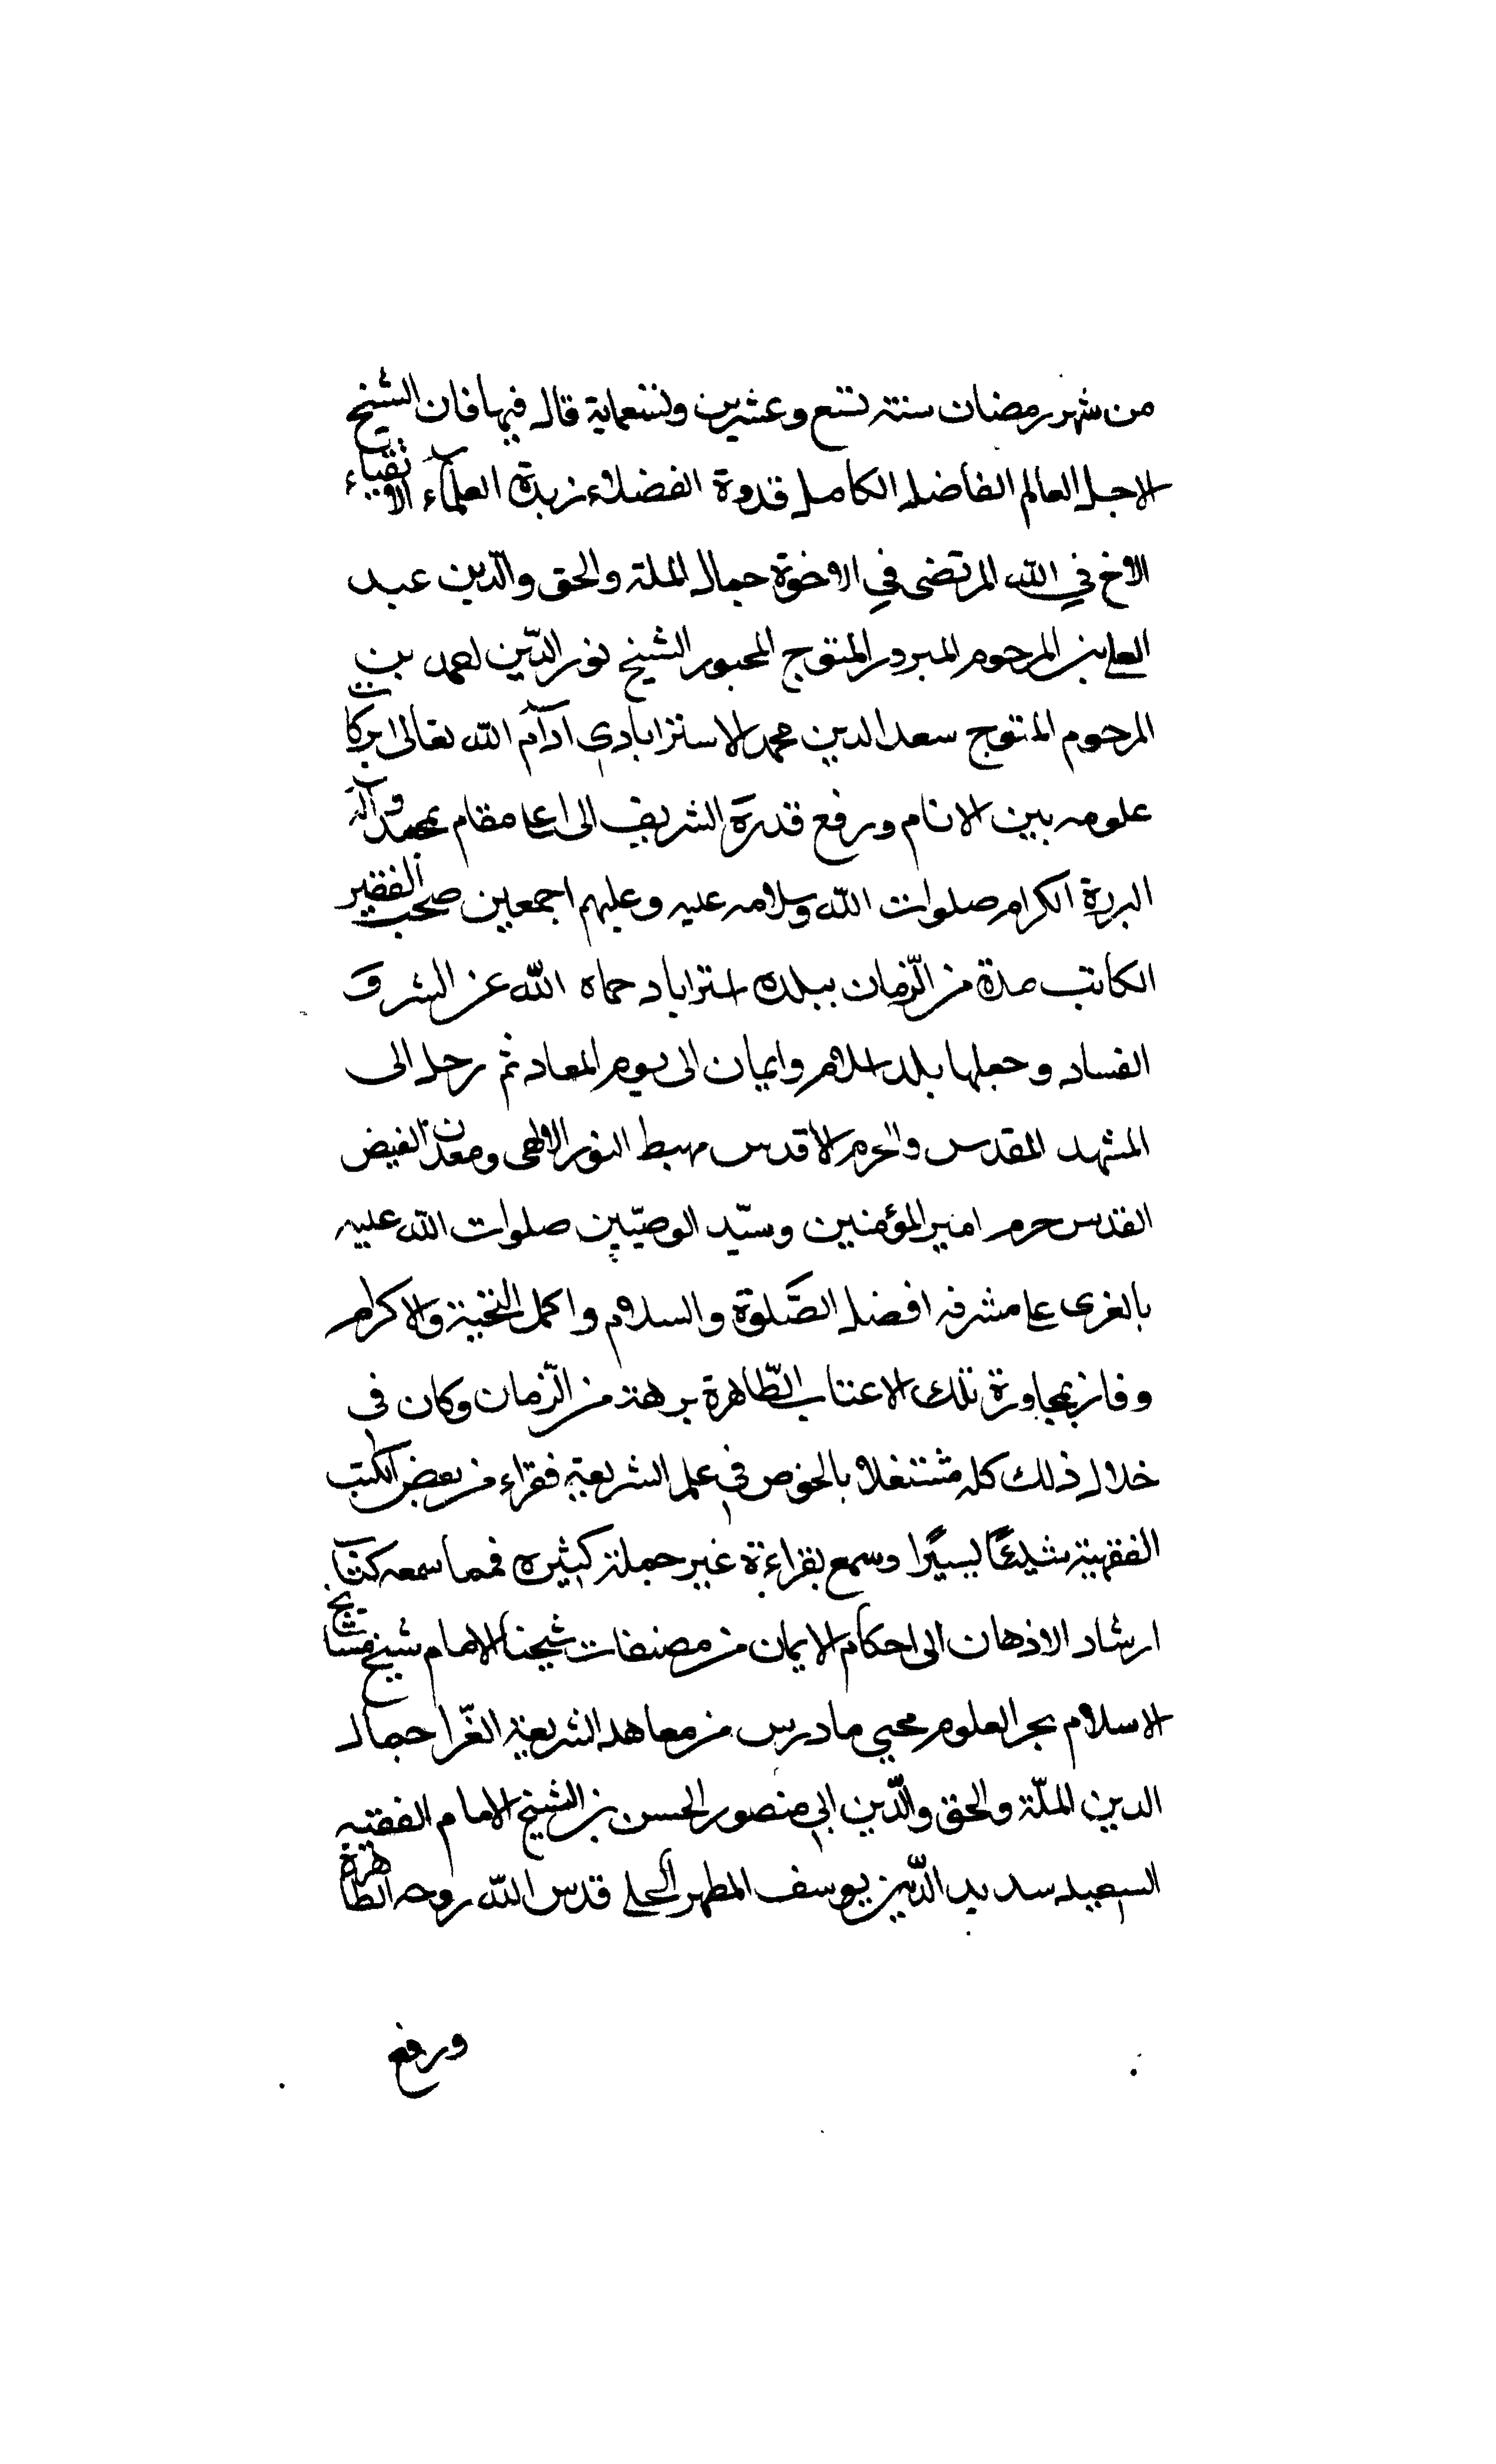 من شهر رمضان سنة تسع وعشرين وتسعماية قال فيها فان الشيخ
الاجل العالم الفاضل الكامل قدوة الفضلاء زبدة العلماء الاتقياء
الاخ في الله المرتضى في الاخوة جمال الملة والحق والدين عبد
العلي بن المرحوم المبرور المتوج المحبور الشيخ نور الدين احمد بن
المرحوم المتوج سعد الدين محمد الاستزابادي ادام الله تعالى بركات
علومه بين الانام ورفع قدره الشريف الى اعلى مقام بمحمد وآله
البررة الكرام صلوات الله وسلامه عليه وعليهم اجمعين صحب الفقير
الكاتب مدة من الزمان ببلده استراباد حماه الله عن الشر و
الفساد وجعلها بلد اسلام وايمان الى يوم المعاد ثم رحل الى
المشهد المقدس والحرم الاقدس مهبط النور الالهى ومعدن الفيض
القدس حرم امير المؤمنين وسيّد الوصيّين صلوات الله عليه
بالغرى على مشرفه افضل الصَّلوة والسلام واكمل التحية والاكرام
وفاز بمجاورة تلك الاعتاب الطّاهرة برهة من الزّمان وكان فى
خلال ذلك كله مشتغلا بالخوص في علم الشريعة فقراء من بعض الكتب
الفقهية شيئًا يسيرًا وسمع بقراءة غير جملة كثيره فمما سمعه كتاب
ارشاد الاذهان الى احكام الايمان من مصنفات شيخنا الامام شيخ مشايخ
الاسلام بحر العلوم محيي ما درس من معاهد الشريعة الغّرا جمال
الدين الملّة والحق والدّين ابي منصور الحسن بن الشيخ الامام الفقيه
السعيد سديد الدّين يوسف المطهر الحلي قدس الله روحه الطاهرة
ورفع